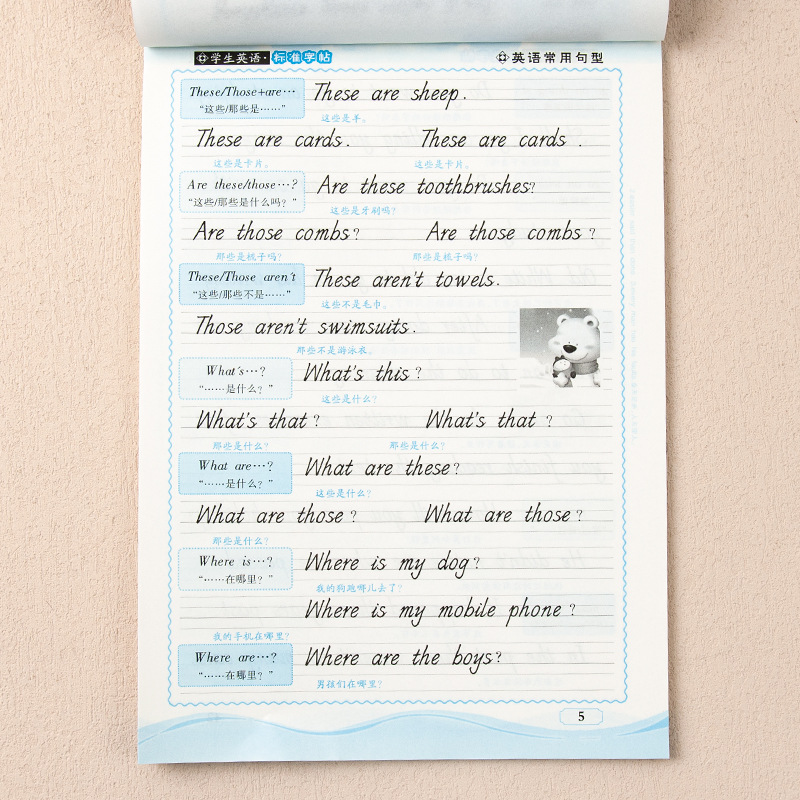 学生英语·标准字帖 英语常用句型
These/Those+are… These are sheep.
“这些/那些是……” 这些是羊。
These are cards. These are cards.
这些是卡片。 这些是卡片。
Are these/those…? Are these toothbrushes?
“这些/那些是什么吗？” 这些是牙刷吗?
Are those combs? Are those combs?
那些是梳子吗? 那些是梳子吗?
These/Those aren't These aren't towels.
“这些/那些不是……” 这些不是毛巾。
Those aren't swimsuits.
那些不是游泳衣。
What's…? What's this?
“……是什么？” 这些是什么?
What's that? What's that?
那些是什么? 那些是什么?
What are…? What are these?
“……是什么？” 这些是什么?
What are those? What are those?
那些是什么?
Where is…? Where is my dog?
“……在哪里？” 我的狗跑哪儿去了?
Where is my mobile phone?
我的手机在哪里?
Where are…? Where are the boys?
“……在哪里？” 男孩们在哪里?
5